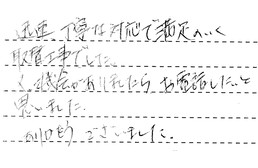 迅速 丁寧な対応で満足のいく
取替工事でした。
又機会がありましたら お電話したいと
思いました。
ありがとう ございました.